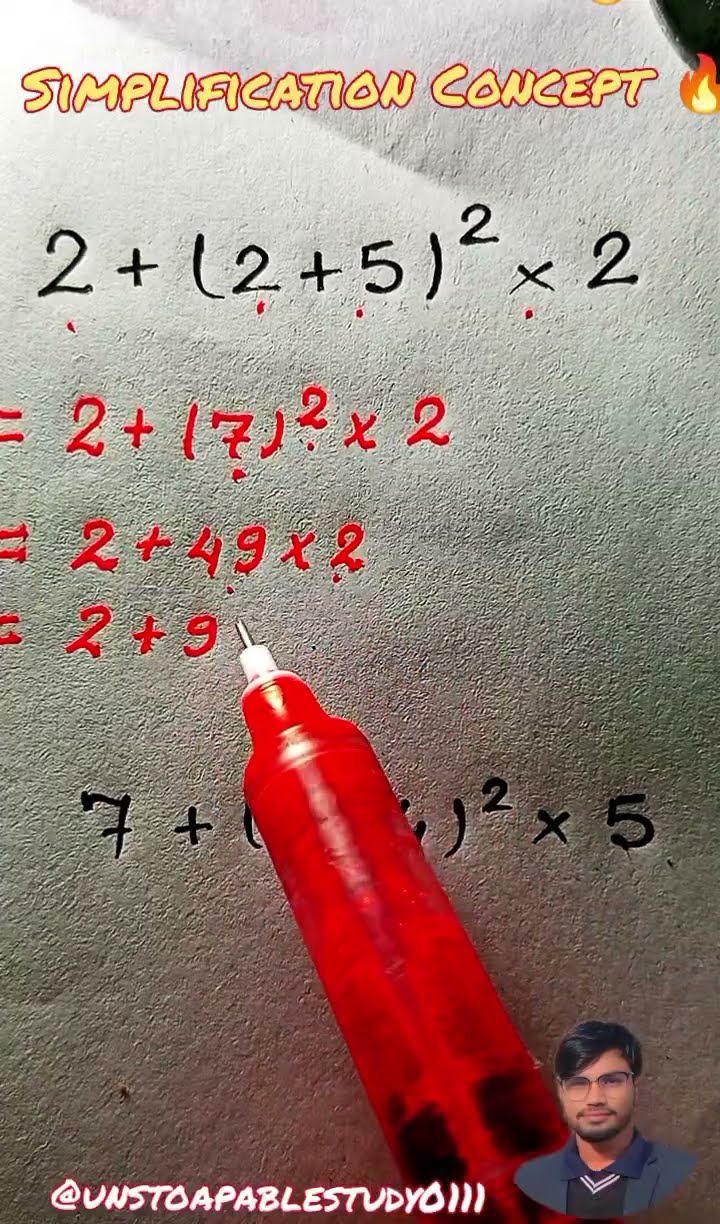 SIMPLIFICATION CONCEPT 🔥
2 + (2 + 5)² × 2
= 2 + (7)² × 2
= 2 + 49 × 2
= 2 + 9
7 + ( )² × 5
@UNSTOAPABLESTUDY0111